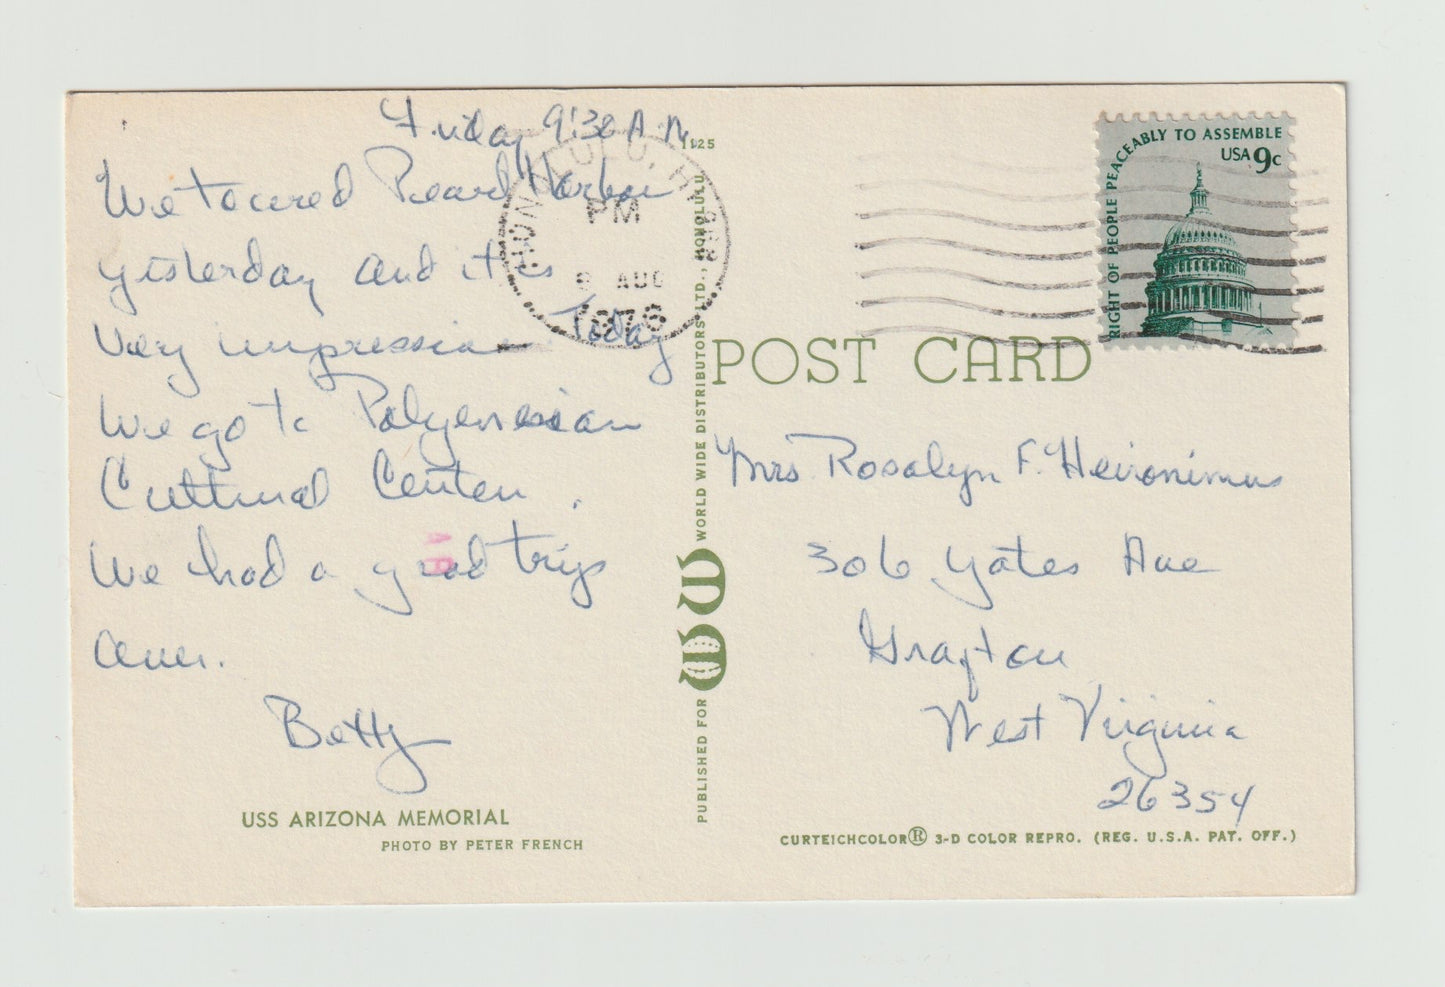 Friday 9:30 A.M.
We toured Pearl Harbor
yesterday and it is
very impressive Today
we go to Polynesian
Cultural Center.
We had a good trip
over.
Betty
USS ARIZONA MEMORIAL
PHOTO BY PETER FRENCH
1125
HONOLULU, HI
PM
AUG
1976
PUBLISHED FOR WW WORLD WIDE DISTRIBUTORS LTD., HONOLULU
RIGHT OF PEOPLE PEACEABLY TO ASSEMBLE
USA 9c
POST CARD
Mrs Rosalyn F. Heironimus
306 Yates Ave
Grafton
West Virginia
26354
CURTEICHCOLOR® 3-D COLOR REPRO. (REG. U.S.A. PAT. OFF.)